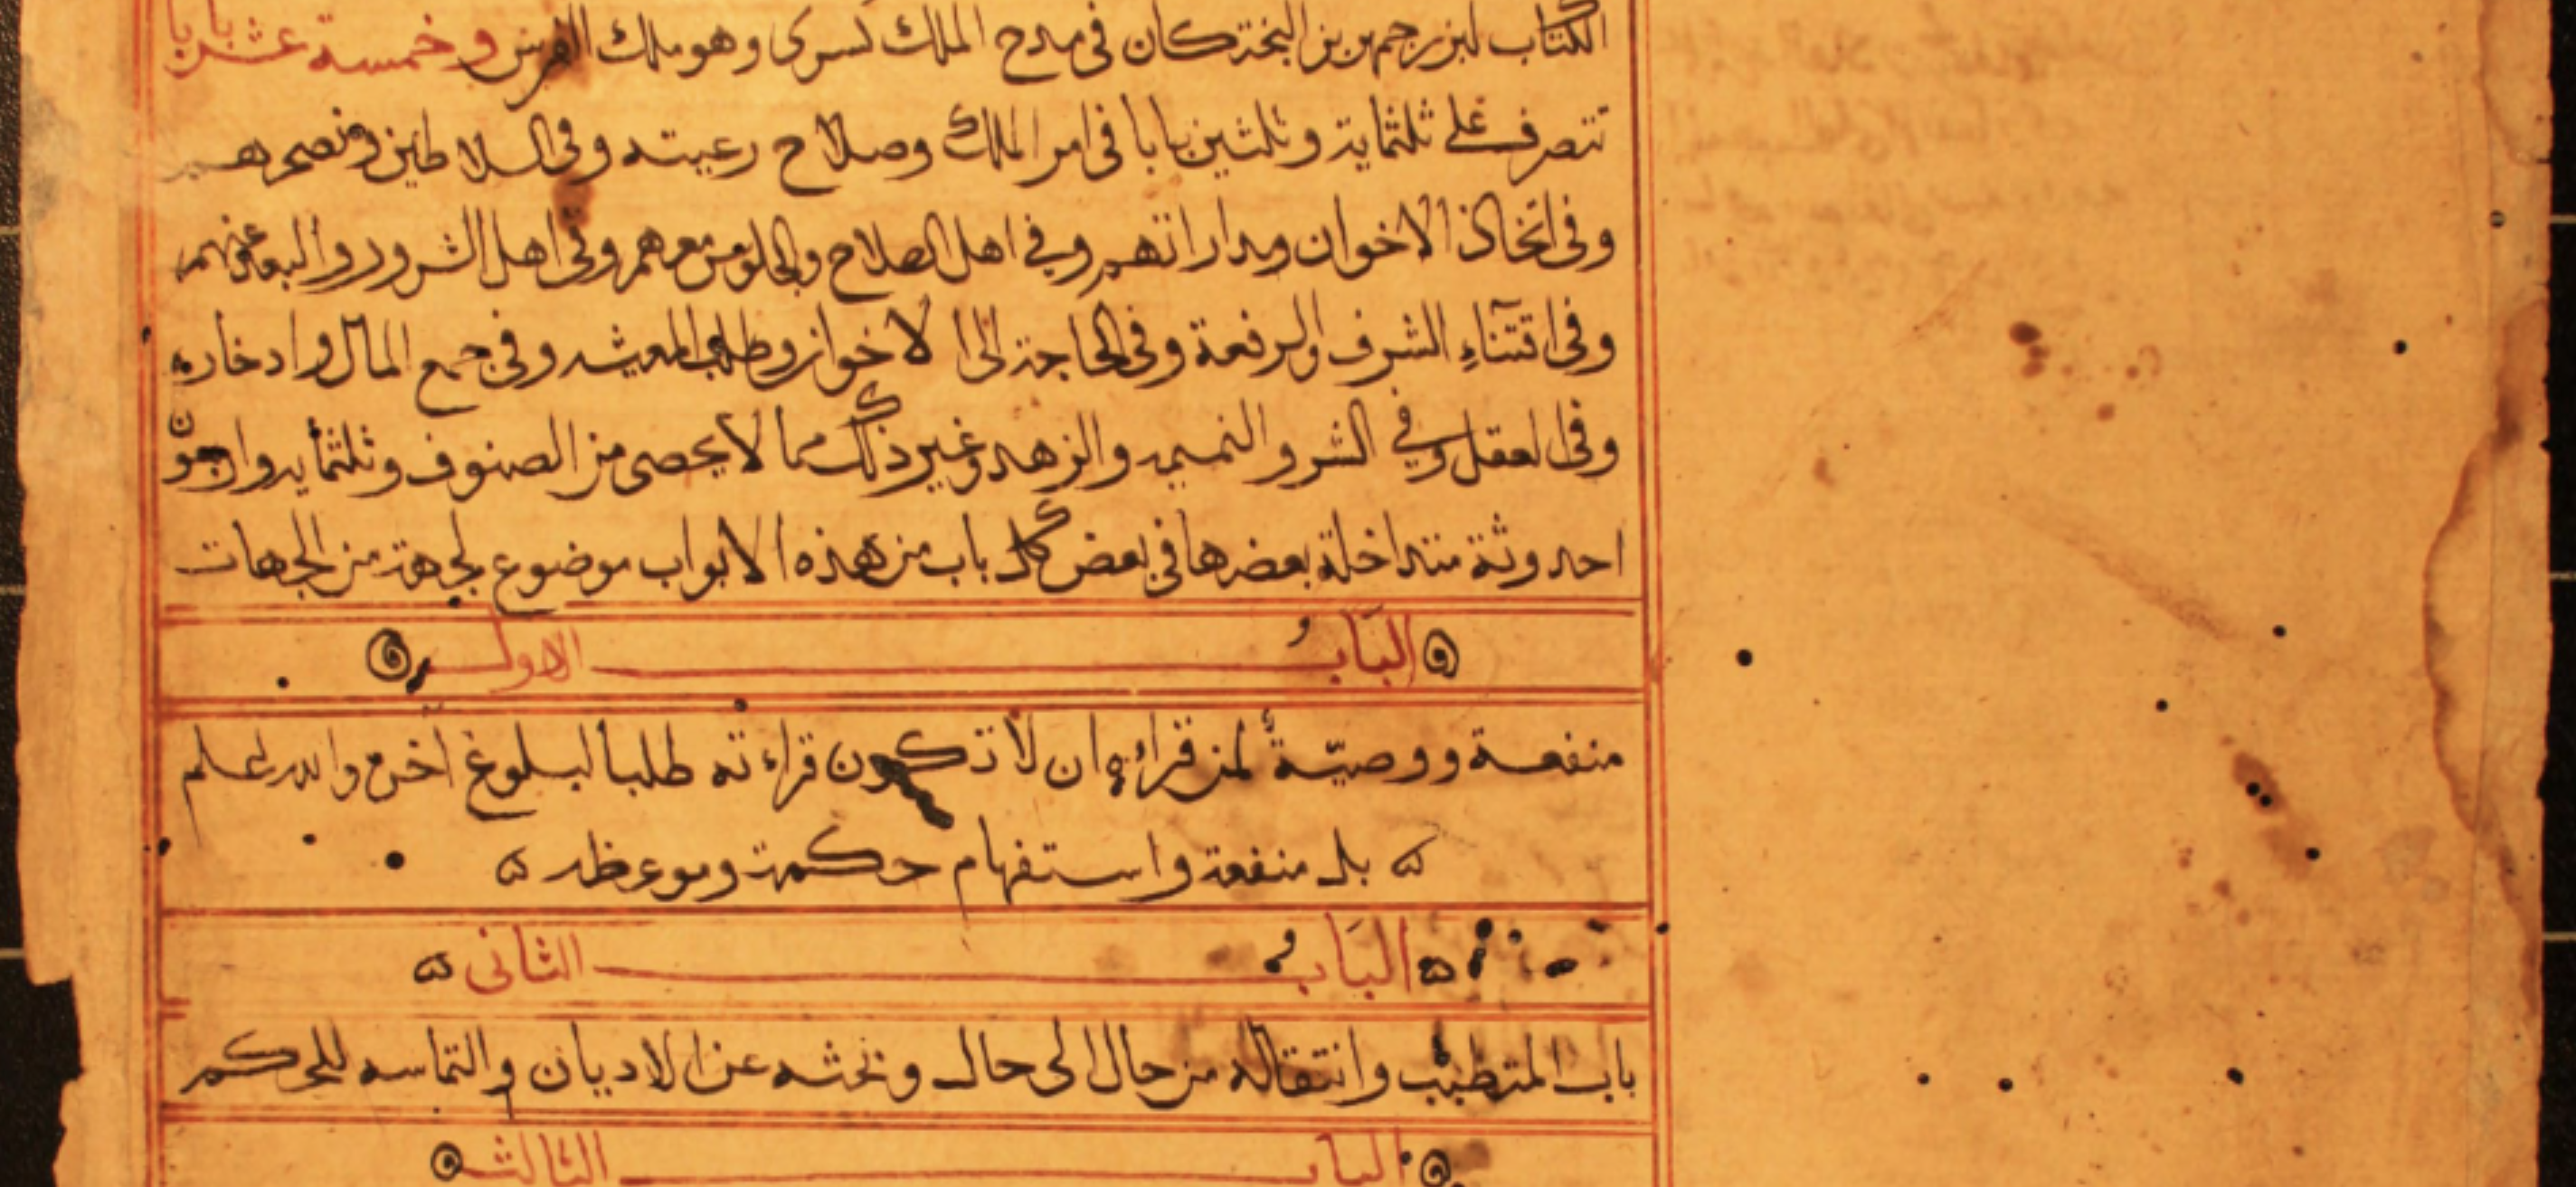 الكتاب لبزرجمهر بن البختكان فى مدح الملك كسرى وهو ملك الفرس وخمسة عشر بابا
تتصرف على ثلثماية وثلثين بابا فى امر الملك وصلاح رعيته وفى السلاطين ونصحهم
وفى اتخاذ الاخوان ومداراتهم وفي اهل الصلاح والجلوس معهم وفى اهل الشرور والبعد عنهم
وفى اقتناء الشرف والرفعة وفى الحاجة الى الاخوان وطلب المعيشه وفى جمع المال وادخاره
وفى العقل وفي الشر والنميمه والزهد وغير ذلك مما لا يحصى من الصنوف وثلثمايه واربعون
احدوثة متداخلة بعضها فى بعض كل باب من هذه الابواب موضوع لجهة من الجهات
البَابُ الاول
منفعة ووصيّة لمن قراءه ان لا تكون قراءته طلبا لبلوغ اخره والله اعلم
بل منفعة واستفهام حكمة وموعظه
البَابُ الثانى
باب المتطبب وانتقاله من حال الى حال وبحثه عن الاديان والتماسه للحكم
الباب الثالث